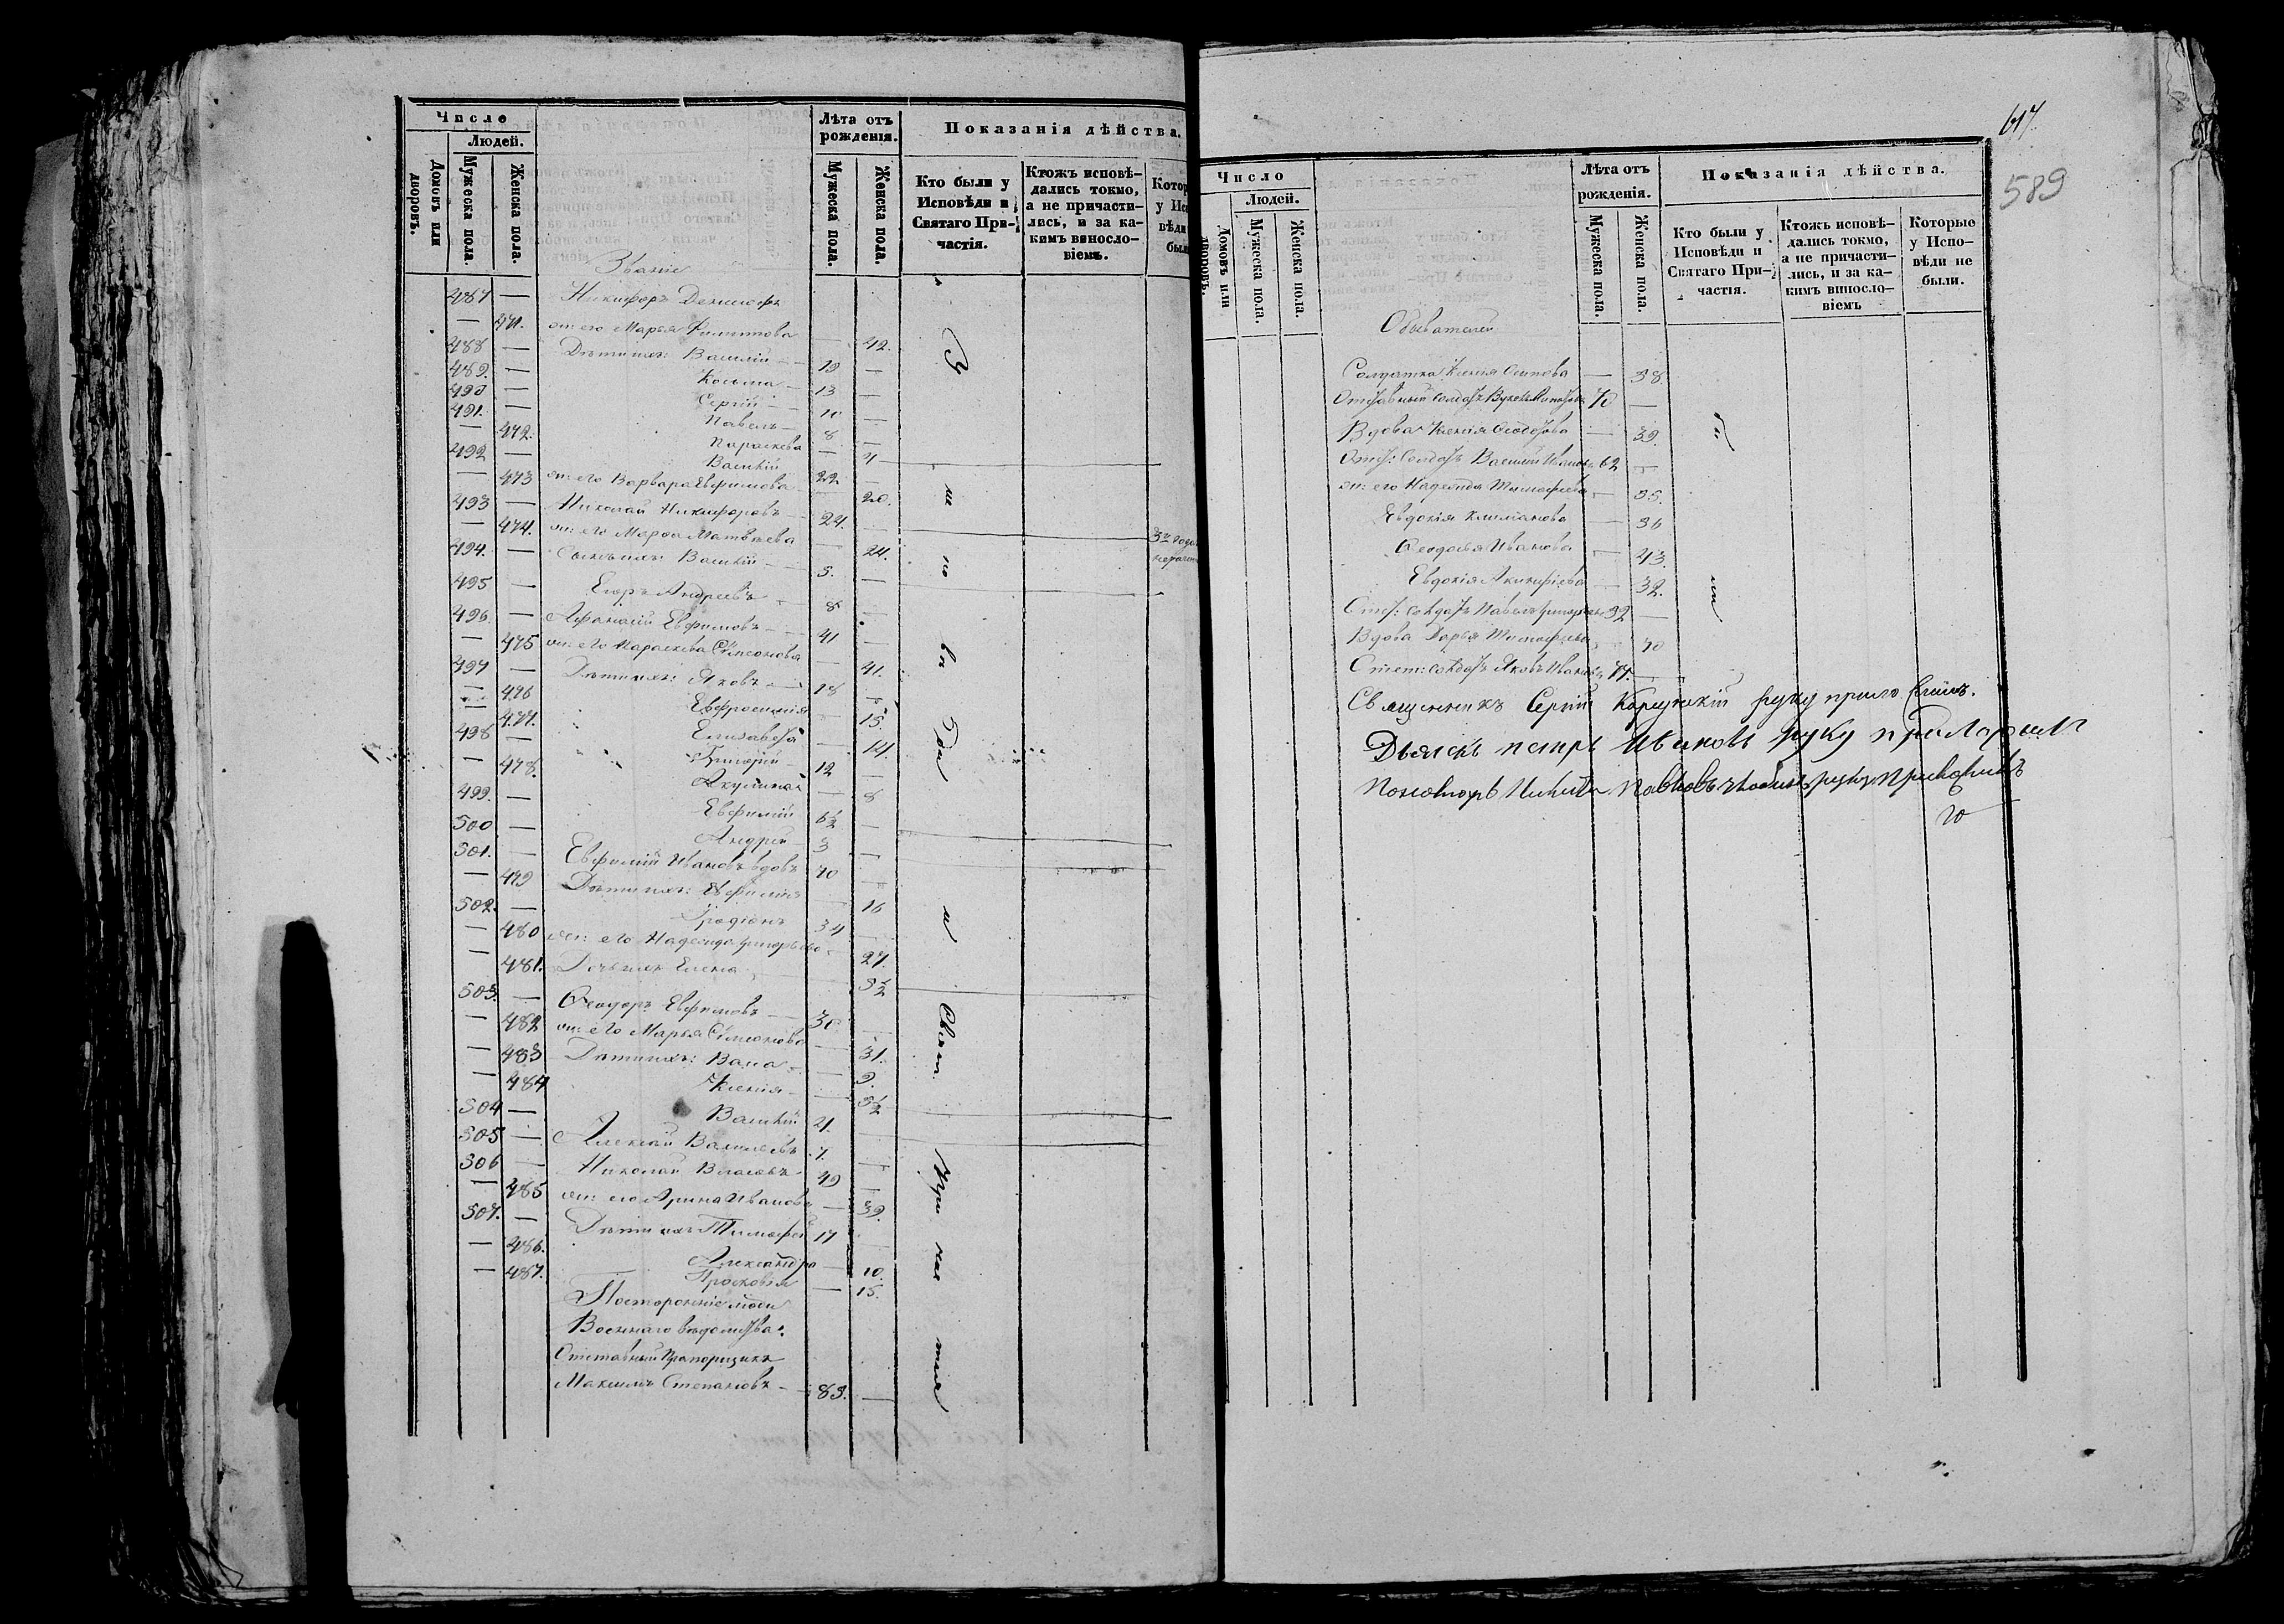 Число
Людей.
Домовъ или дворовъ.
Мужеска пола.
Женска пола.
Званіе
Лѣта отъ рожденія.
Мужеска пола.
Женска пола.
Показанія дѣйства.
Кто были у Исповѣди и Святаго Причастія.
Ктожъ исповѣдались токмо, а не причастились, и за какимъ винословіемъ.
487 —
— 471. его Марья Филиппова — 42.
488 — Дѣти ихъ: Василій 19 —
489. — Косьма 13 —
490 — Сергій 10 —
491. — Павелъ 8 —
— 472. Параскева — 4
492 — Василій 22 —
— 473 его Варвара Евфимова — 20.
493 — Николай Никифоровъ 24. —
— 474. его Марѳа Матвѣева — 24.
494. — Сынъ ихъ: Василій 3. —
495 — Егоръ Андреевъ 8 —
496. — Афанасій Евфимовъ 41 —
— 475 его Параскева Симеонова — 41.
497 — Дѣти ихъ: Яковъ 18 —
— 476 Евфросинія — 15.
— 477. Елисавета — 14.
498 — Григорій 12 —
— 478. Акулина — 8
499. — Евфимій 6½ —
500 — Андрей 3 —
501. — Евфимій Ивановъ вдовъ 70 —
— 479 Дѣти ихъ: Евфимія — 16
502. — Родіонъ 34 —
— 480 его Надежда Григорьева — 27.
— 481. Дочь ихъ Елена — 3½
503. — Ѳеодоръ Евфимовъ 30 —
— 482 его Марья Симеонова — 31.
— 483 Дѣти ихъ: — 9.
— 484 Ксенія — 3½
504 — Василій 21. —
505 — Алексѣй Васильевъ 7. —
506 — Николай Власовъ 49 —
— 485 его Арина Иванова — 39.
507. — Дѣти ихъ Тимофей 17 —
— 486. Александра — 10.
— 487. Прасковья — 15.
Посторонніе люди
Военнаго вѣдомства:
Отставный Прапорщикъ
Максимъ Степановъ 83. —
Испо вѣ да и Свят. При час тія
617.
589
Число
Людей.
Домовъ или дворовъ.
Мужеска пола.
Женска пола.
Обыватели
Лѣта отъ рожденія.
Мужеска пола.
Женска пола.
Показанія дѣйства.
Кто были у Исповѣди и Святаго Причастія.
Ктожъ исповѣдались токмо, а не причастились, и за какимъ винословіемъ
Которые у Исповѣди не были.
Солдатка Ксенія Осипова — 38.
Отставный солдатъ 70 —
Вдова Ксенія Ѳеодотова — 39.
Отст: Солдатъ Василій Ивановъ 62 —
его Надежда Тимофѣева — 35.
Евдокія — 36
Ѳеодосья Иванова — 43.
Евдокія Акинфіева — 32.
Отст: солдатъ Павелъ Григорьевъ 32 —
Вдова Дарья Тимофѣева — 40
Отст: солдатъ Яковъ Ивановъ 77. —
Священникъ Сергій руку приложилъ.
Дьяконъ Петръ Ивановъ руку приложилъ
Пономарь Никита Павловъ руку приложилъ